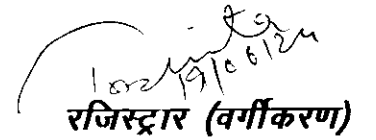 19/06/24
रजिस्ट्रार (वर्गीकरण)